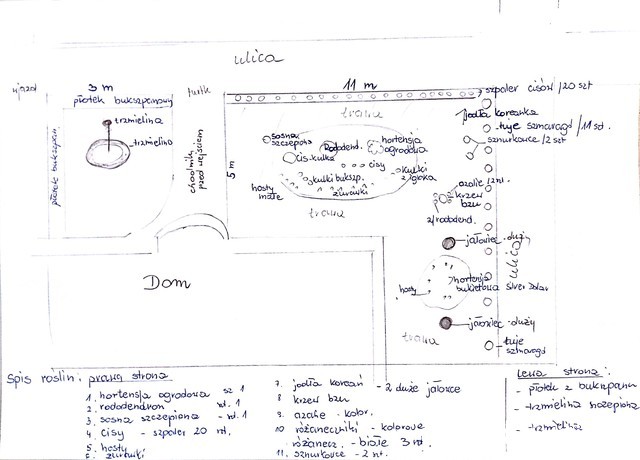 ulica
wjazd
3 m
płotek bukszpanowy
furtk
11 m
szpaler cisów /20 szt
trzmielina
trawa
jodła koreańka
tuje szmaragd /11 szt.
sznurkowce /2 szt
płotek bukszpan.
trzmielina
chodnik przed wejściem
5 m
sosna
szczepiona
Rododend.
hortensja
ogrodowa
cis.kulka
cisy
kulki
z igłaka
kulki bukszp.
hosty
małe
żurawki
trawa
azalie /2szt.
krzew
bzu
2/rododend.
jałowiec duży
ulica
Dom
hortensja
bukietowa Silver Dolar
hosty
jałowiec duży
trawa
tuje
szmaragd
Spis roślin: prawa strona
1. hortensja ogrodowa szt 1
2. rododendron szt. 1
3. sosna szczepiona - szt. 1
4. cisy - szpaler 20 szt.
5. hosty
6. żurawki
7. jodła koreań - 2 duże jałowce
8 krzew bzu
9. azalie - kolor.
10 różaneczniki - kolorowe
różanecz. - białe 3 szt.
11. sznurkowce - 2 szt.
Lewa strona:
- płotek z bukszpanu
- trzmielina szczepiona
- trzmielina